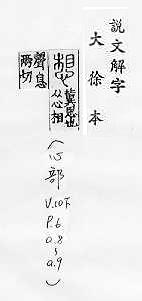 說文解字
大徐本
想
冀思也
从心相
聲息
兩切
(心部
V.10下
P.6
a.8
~
a.9
)